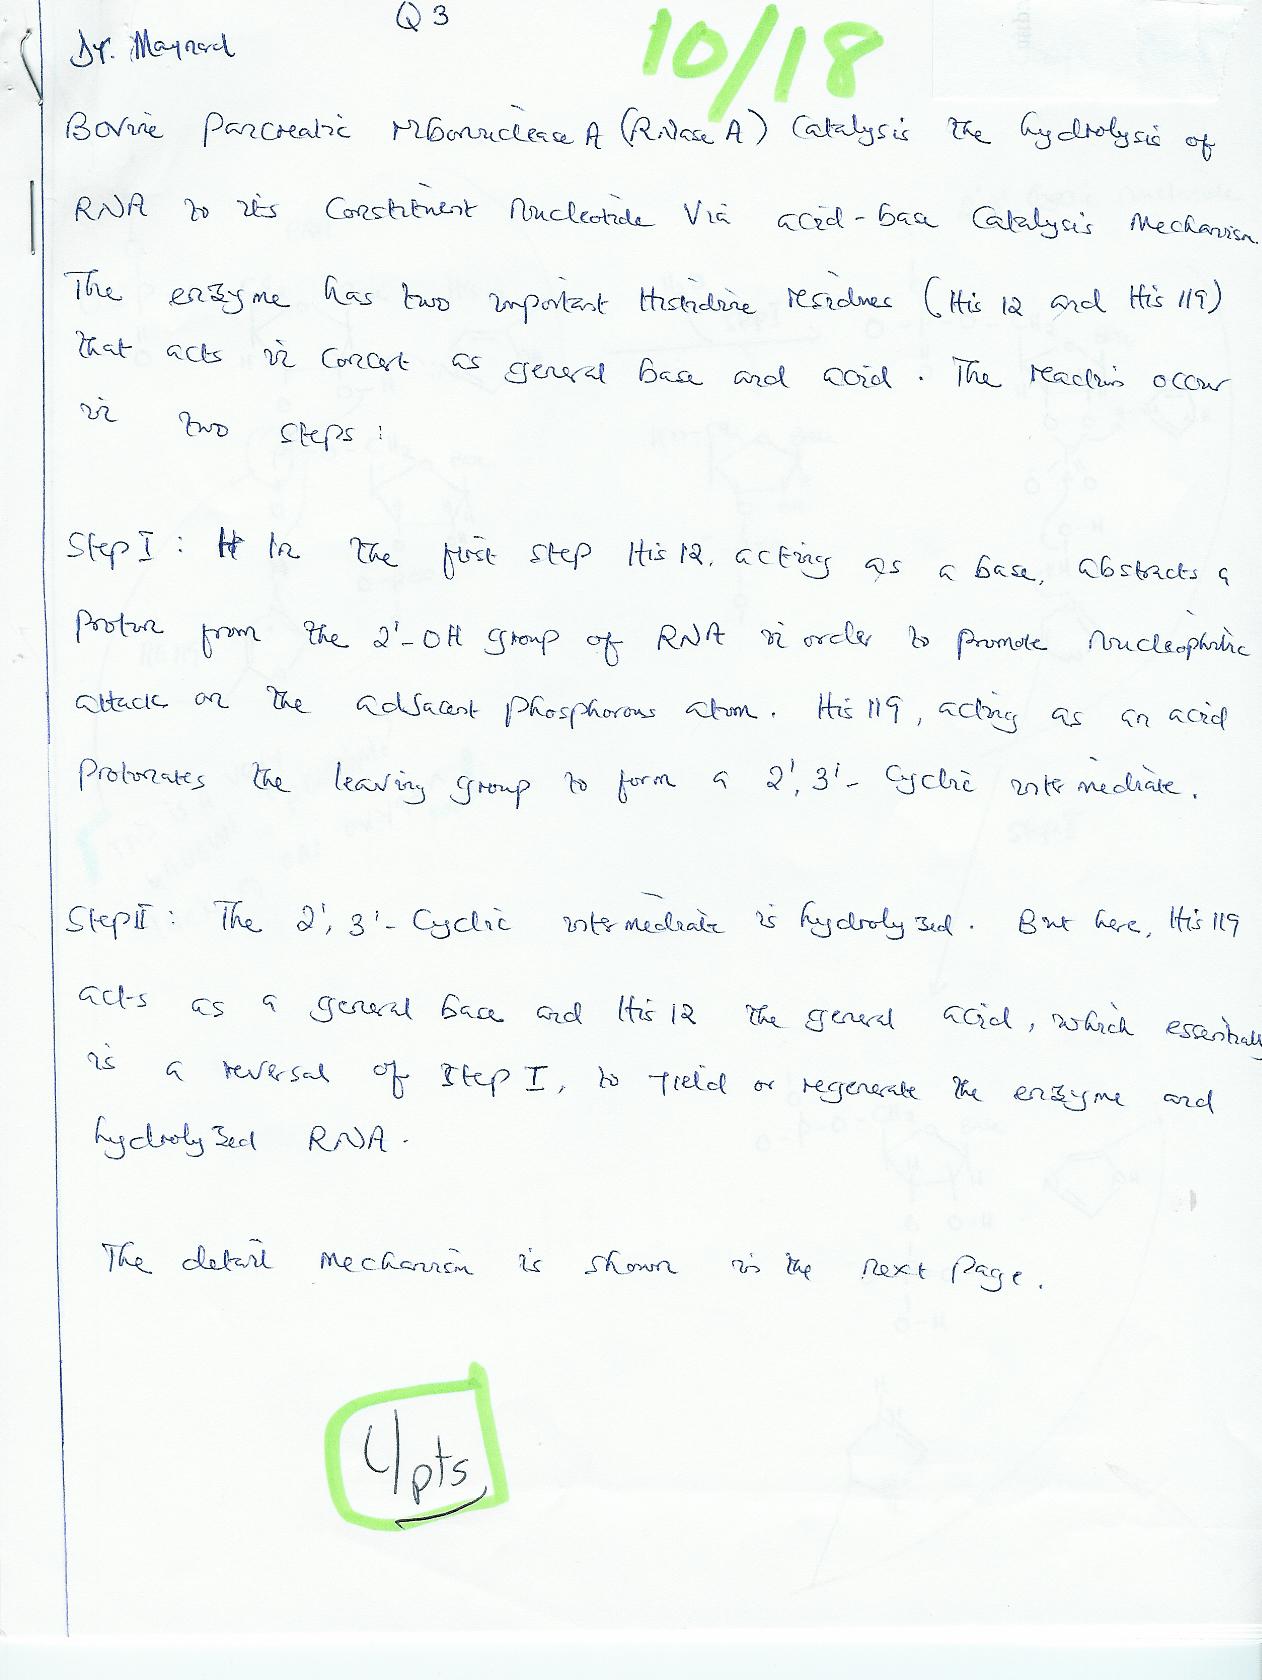 Q3
10/18
Dr. Maynard
Bovine Pancreatic ribonuclease A (RNase A) Catalysis the hydrolysis of
RNA to its Constituent Nucleotide Via acid-base Catalysis Mechanism.
The enzyme has two important Histidine residues (His 12 and His 119)
that acts in concert as general base and acid. The reactions occur
in two steps:
Step I: In the first step His 12, acting as a base, abstracts a
Proton from the 2'-OH group of RNA in order to promote nucleophilic
attack on the adjacent phosphorous atom. His 119, acting as an acid
Protonates the leaving group to form a 2', 3'- Cyclic intermediate.
Step II: The 2', 3'- Cyclic intermediate is hydrolyzed. But here, His 119
acts as a general base and His 12 the general acid, which essentially
is a reversal of Step I, to yield or regenerate the enzyme and
hydrolyzed RNA.
The detail mechanism is shown in the next page.
4pts